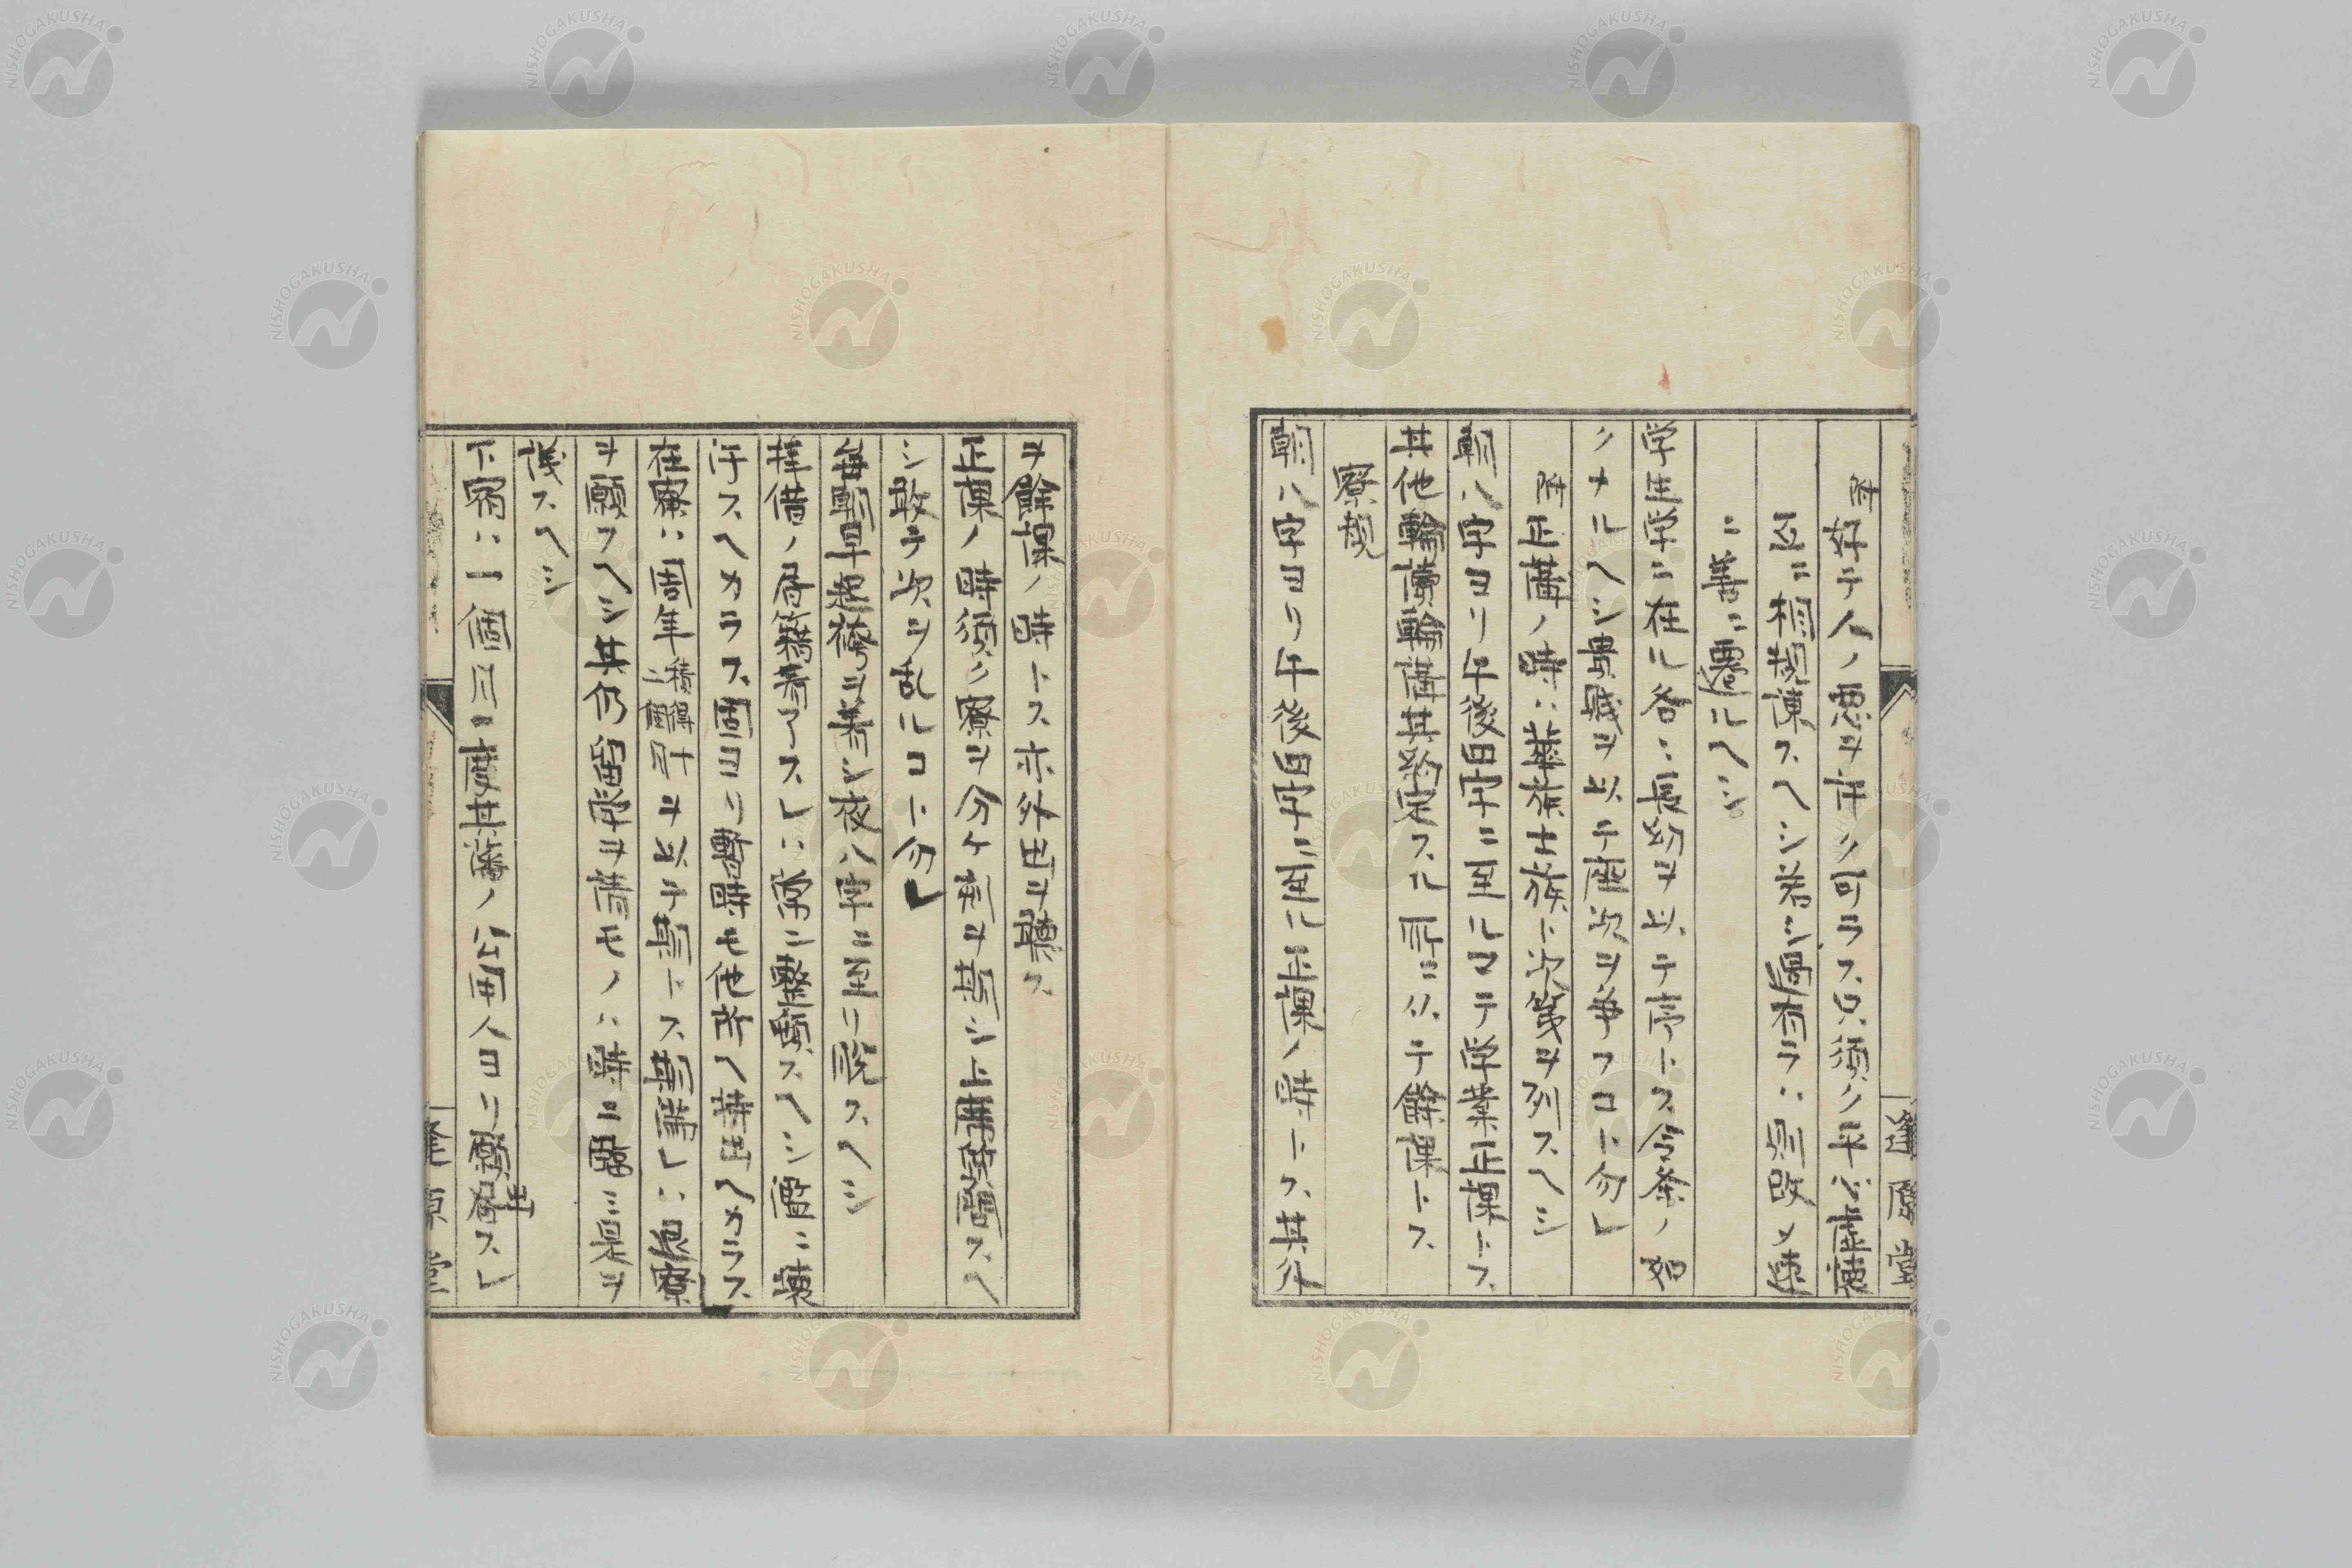 附好テ人ノ悪ヲ訐ク可ラス只須ク平心虚懐
互ニ相規諌スヘシ若シ過有ラハ則改メ速
ニ善ニ遷ルヘシ
学生学ニ在ル各ハ長幼ヲ以テ序トス令条ノ如
クナルヘシ貴賎ヲ以テ座次ヲ争フコト勿レ
附正講ノ時ハ華族士族ト次第ヲ列スヘシ
朝八字ヨリ午後四字ニ至ルマテ学業正課トス
其他輪読輪講其約定スル所ニ従テ餘課トス
寮規
朝八字ヨリ午後四字ニ至ル正課ノ時トス其外
ヲ餘課ノ時トス亦外出ヲ聴ス
正課ノ時須ク寮ヲ分ケ刻ヲ期シ上講質問スヘ
シ敢テ次ヲ乱ルコト勿レ
毎朝早起襟ヲ著シ夜八字ニ至リ脱スヘシ
拝借ノ書籍看了スレハ常ニ整頓スヘシ濫ニ壊
汗スヘカラス固ヨリ暫時モ他所ヘ持出ヘカラス
在寮ハ周年積得十二個月ヲ以テ期トス期満レハ退寮
ヲ願フヘシ其仍留学ヲ請モノハ時ニ臨ミ是ヲ
議スヘシ
下宿ハ一個月ニ度其藩ノ公用人ヨリ願書出スレ
逢原堂
逢原堂
NISHOGAKUSHA